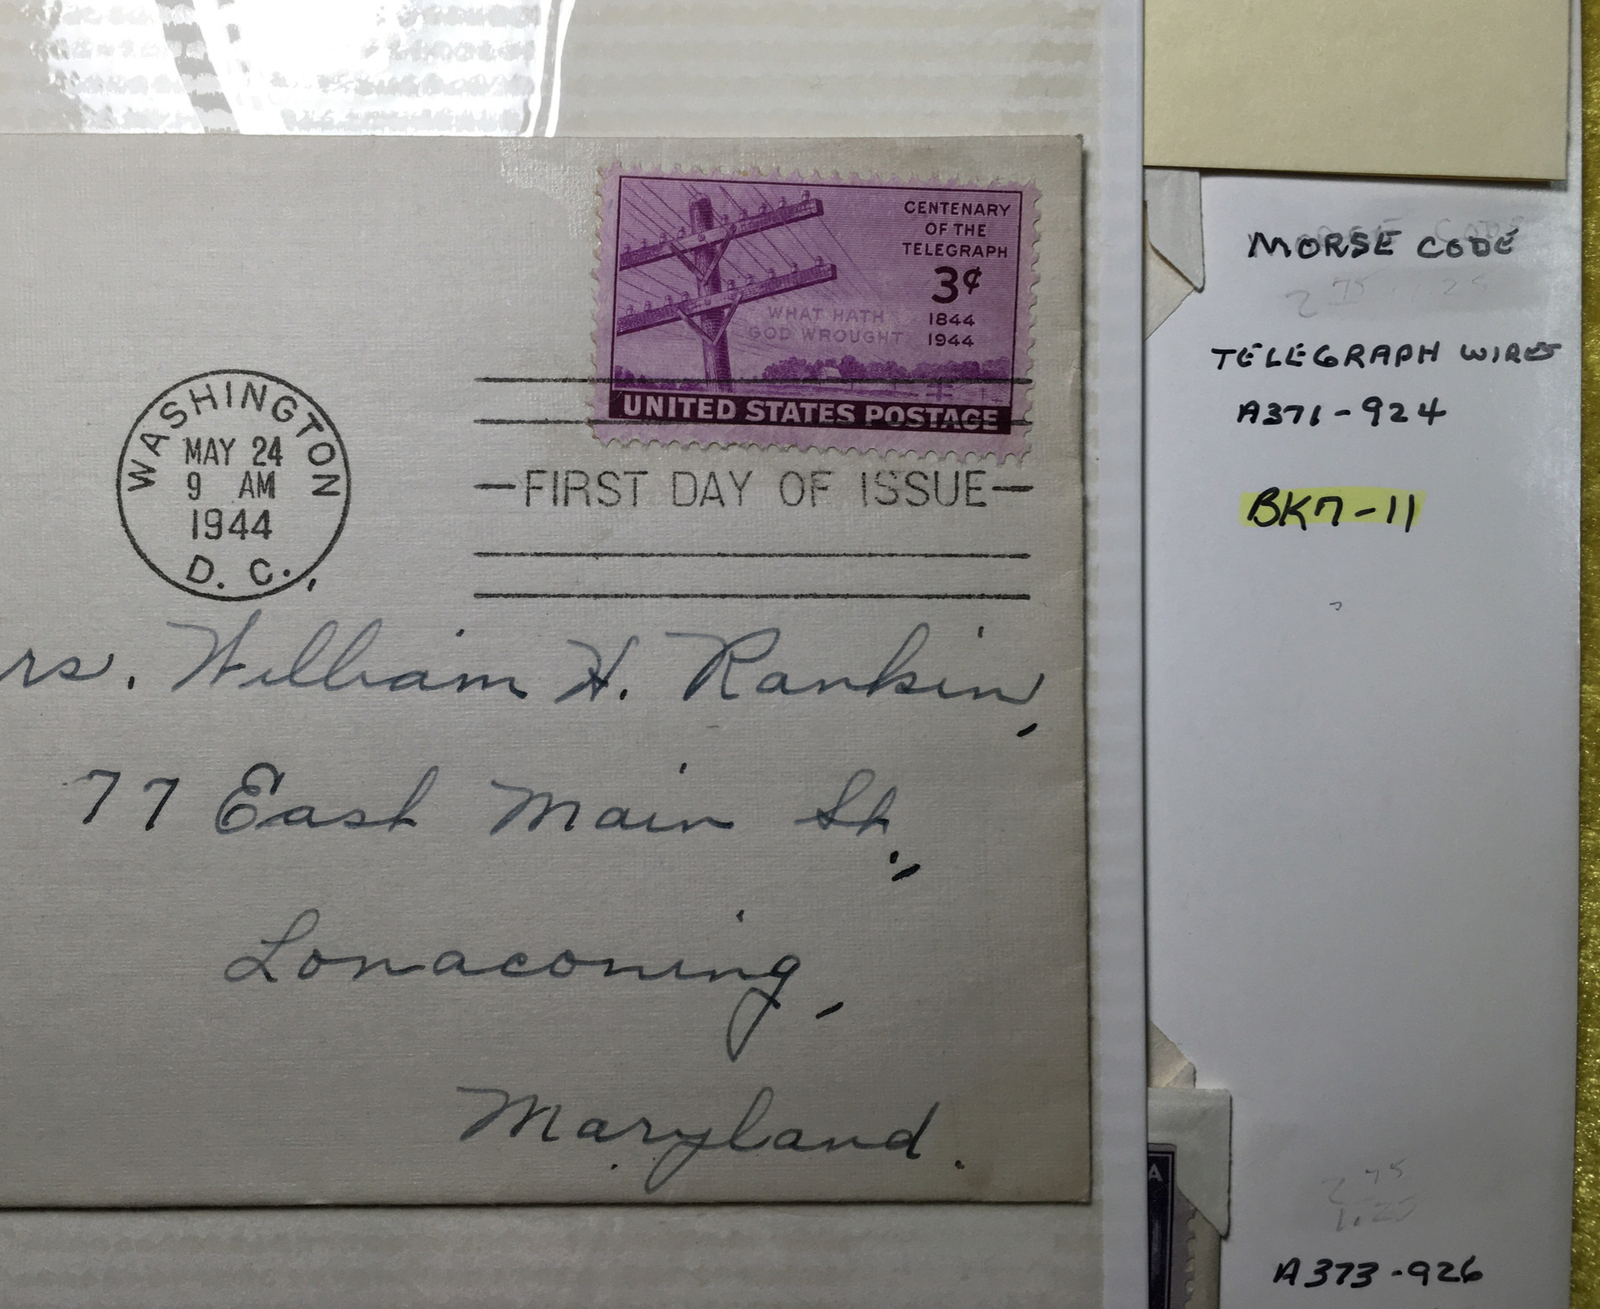 CENTENARY
OF THE
TELEGRAPH
3¢
WHAT HATH
GOD WROUGHT
1844
1944
UNITED STATES POSTAGE
WASHINGTON
MAY 24
9 AM
1944
D. C.
—FIRST DAY OF ISSUE—
rs. William H. Rankin,
77 East Main St.,
Lonaconing,
Maryland.
MORSE CODE
TELEGRAPH WIRES
A371-924
BK7-11
A
A373-926